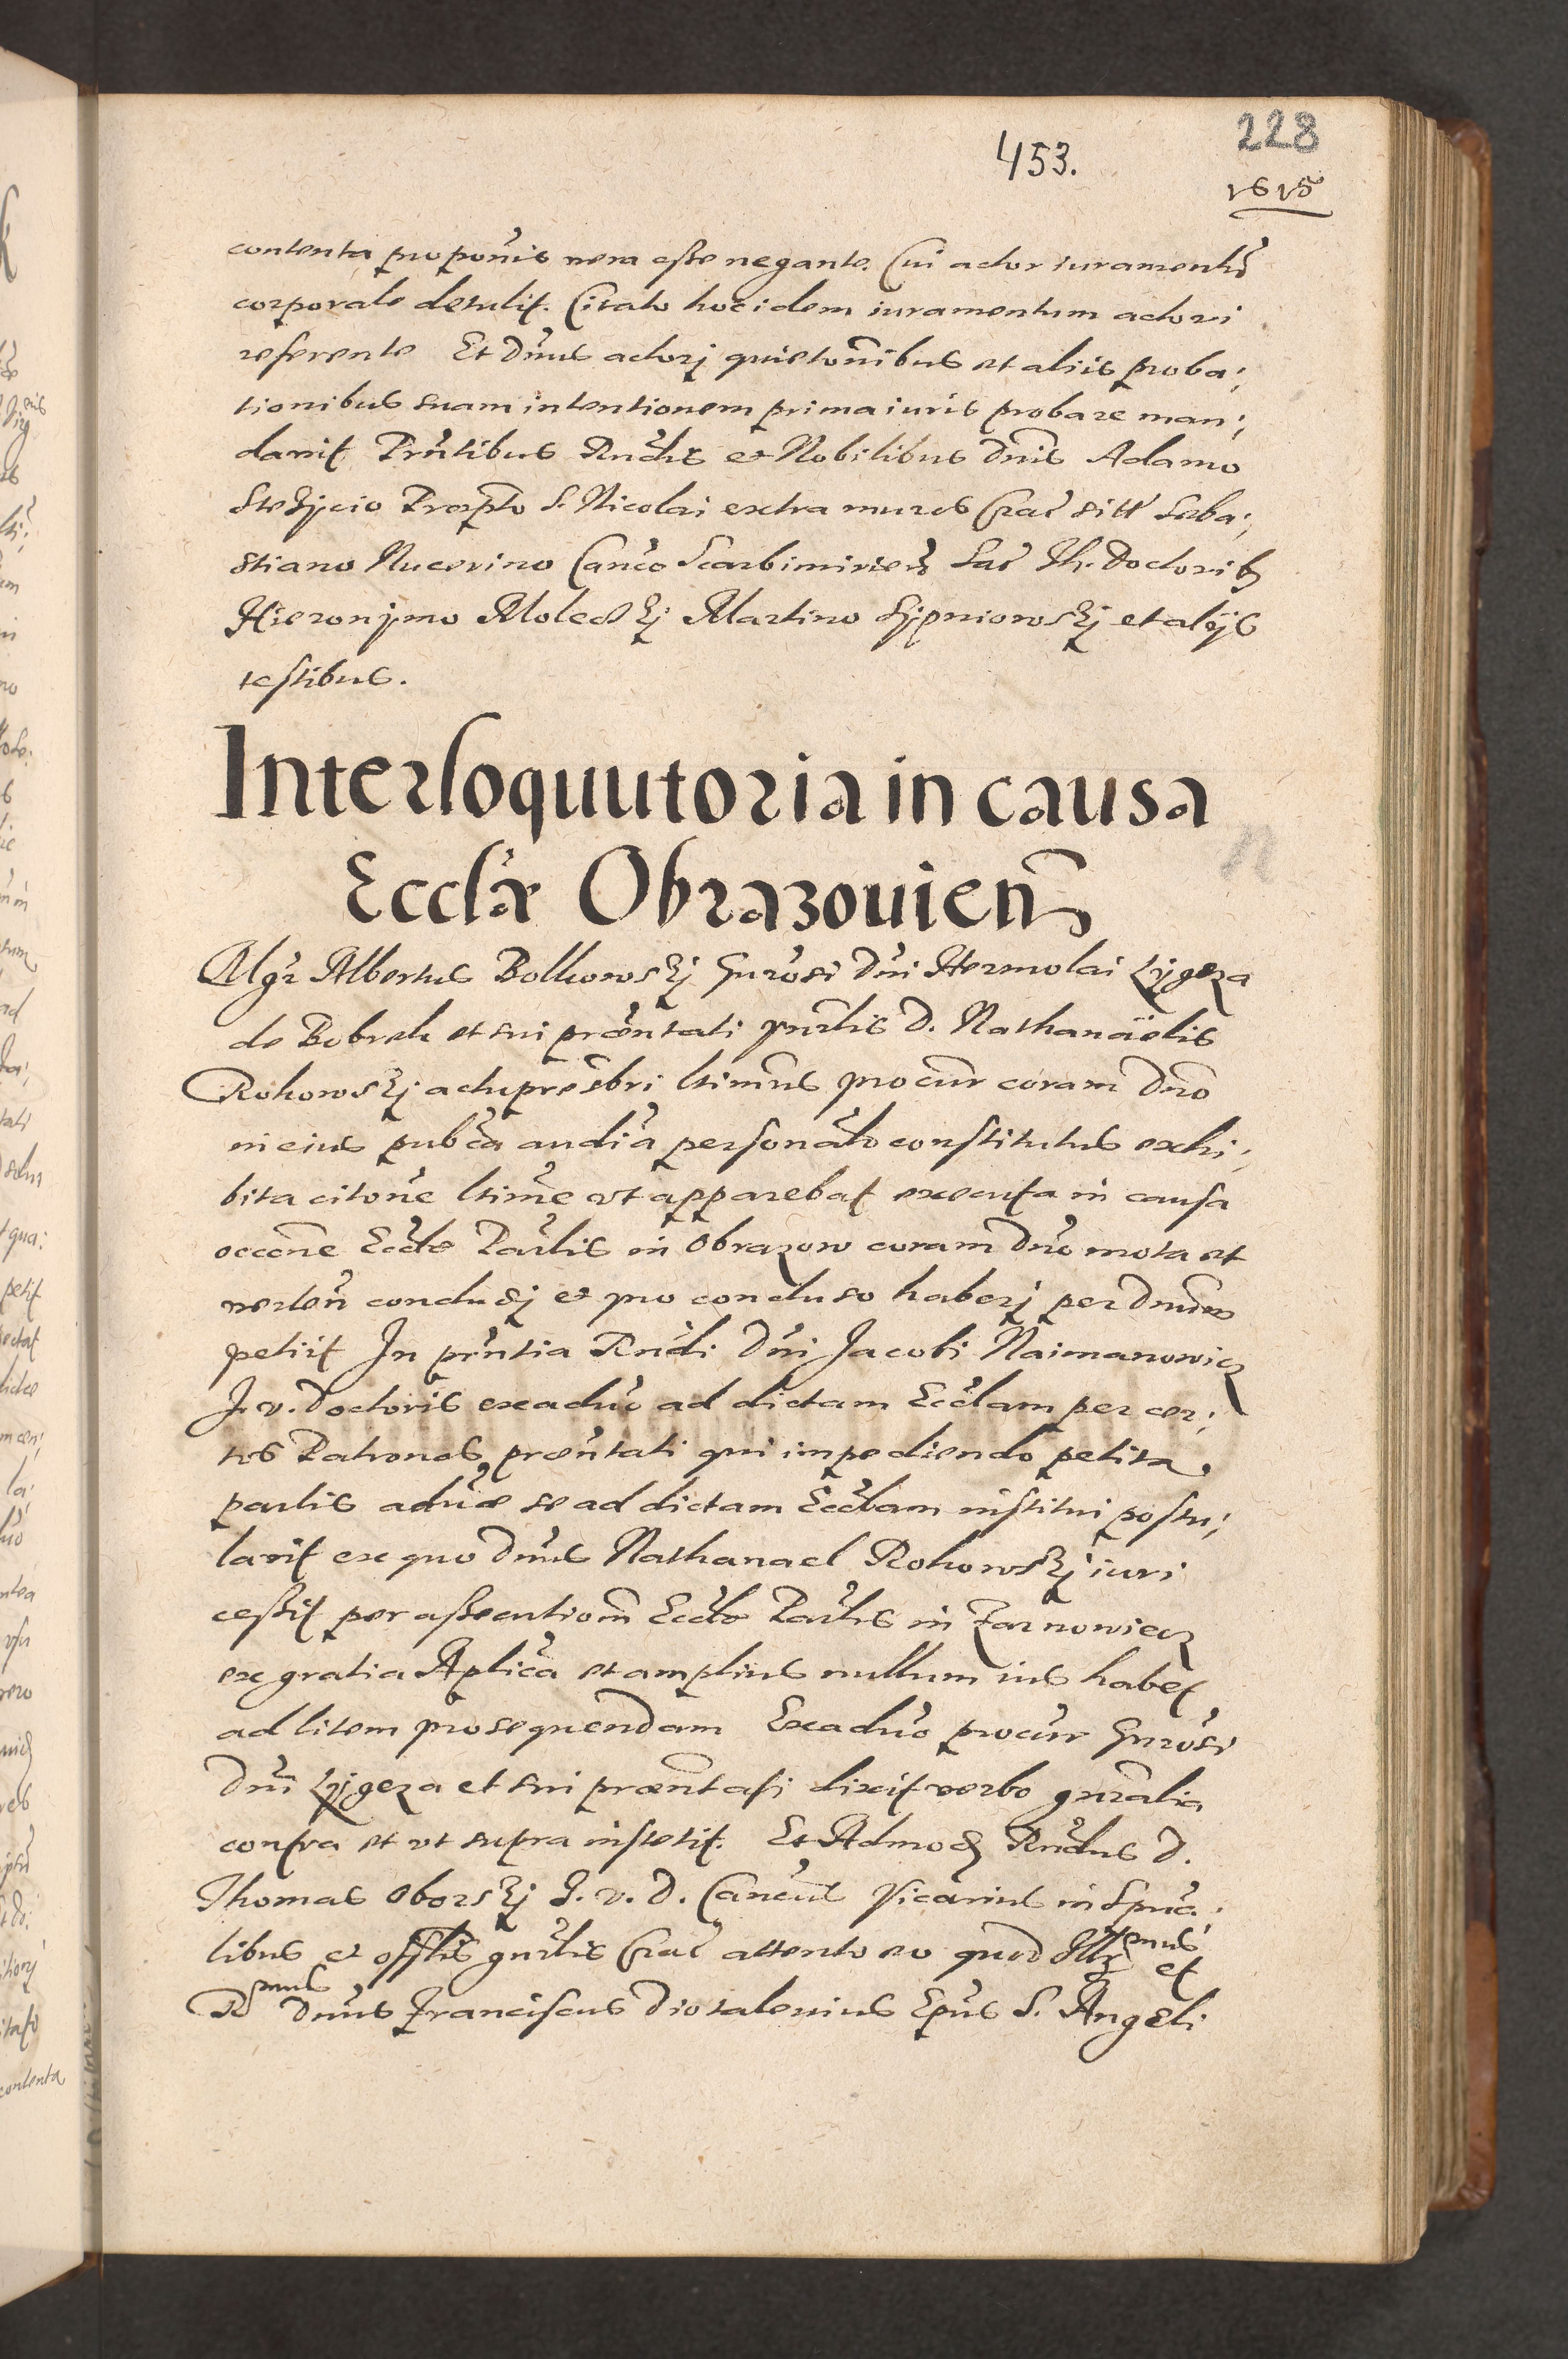 453.
228
1615
contenta propoñis vera esse negante. Cui actor iuramentũ
corporale detulit. Citato hoc idem iuramentum actori
referente Et Dnus actorj quietonibus et aliis proba;
tionibus suam intentionem prima iuris probare man;
davit Prntibus Rndis et Nobilibus Dnis Adamo
Prepto S. Nicolai extra muros Crac sitt Seba;
stiano Nucerino Canco Scarbimirien Sac Th. Doctorib
Hieronymo Moleckj Martino Sypniowskj et alijs
testibus.
Interloquutoria in causa
Eccłæ Obrazouien
Mgr Albertus Bolkowskj Gnrosi Dni Hermolai Lygeza
de Bobrek et sui præntati ynrlis D. Nathanäelis
Rokowskj actupresbri ltimus procur coram Dno
in eius pubca audia personalr constitutus exhi;
bita citone ltime vt apparebat executa in causa
occone Eccle Parlis in Obrazow coram Dno mota et
verten concludj et pro concluso haberj per Dnum
petiit In prntia Rndi Dni Jacobi Naimanowicz
J. v. Doctoris exaduo ad dictam Ecclam per cer;
tos Patronos præntati qui impediendo petita
partis aduæ se ad dictam Ecclam institui postu;
lavit ex quo Dnus Nathanael Rokowskj iuri
cessit per assecutiom Eccle Parlis in Zarnowiecz
ex gratia Aplica et amplius nullum ius habet
ad litem prosequendam Exaduo procur Gnrosi
Dni Lygeza et sui præntati dixit verbo gnralia
contra et vt supra institit. Et Admod Rndus D.
Thomas Oborskj J. v. D. Cancus Vicarius in Spua
libus et offlis gnrlis Crac attento eo quod Illmus et
Rmus Dnus Franciscus Diotalevius Epus S. Angeli